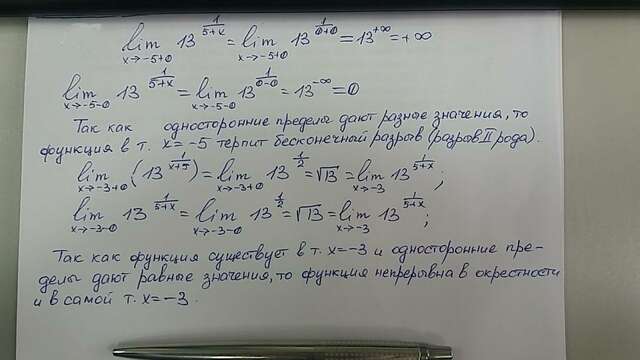 lim x→-5+0 13^(1/(5+x)) = lim x→-5+0 13^(1/(0+0)) = 13^(+∞) = +∞
lim x→-5-0 13^(1/(5+x)) = lim x→-5-0 13^(1/(0-0)) = 13^(-∞) = 0
Так как односторонние пределы дают разные значения, то
функция в т. x = -5 терпит бесконечный разрыв (разрыв II рода).
lim x→-3+0 (13^(1/(x+5))) = lim x→-3+0 13^(1/2) = √13 = lim x→-3 13^(1/(5+x));
lim x→-3-0 13^(1/(5+x)) = lim x→-3-0 13^(1/2) = √13 = lim x→-3 13^(1/(5+x));
Так как функция существует в т. x = -3 и односторонние пре-
делы дают равные значения, то функция непрерывна в окрестности
и в самой т. x = -3.